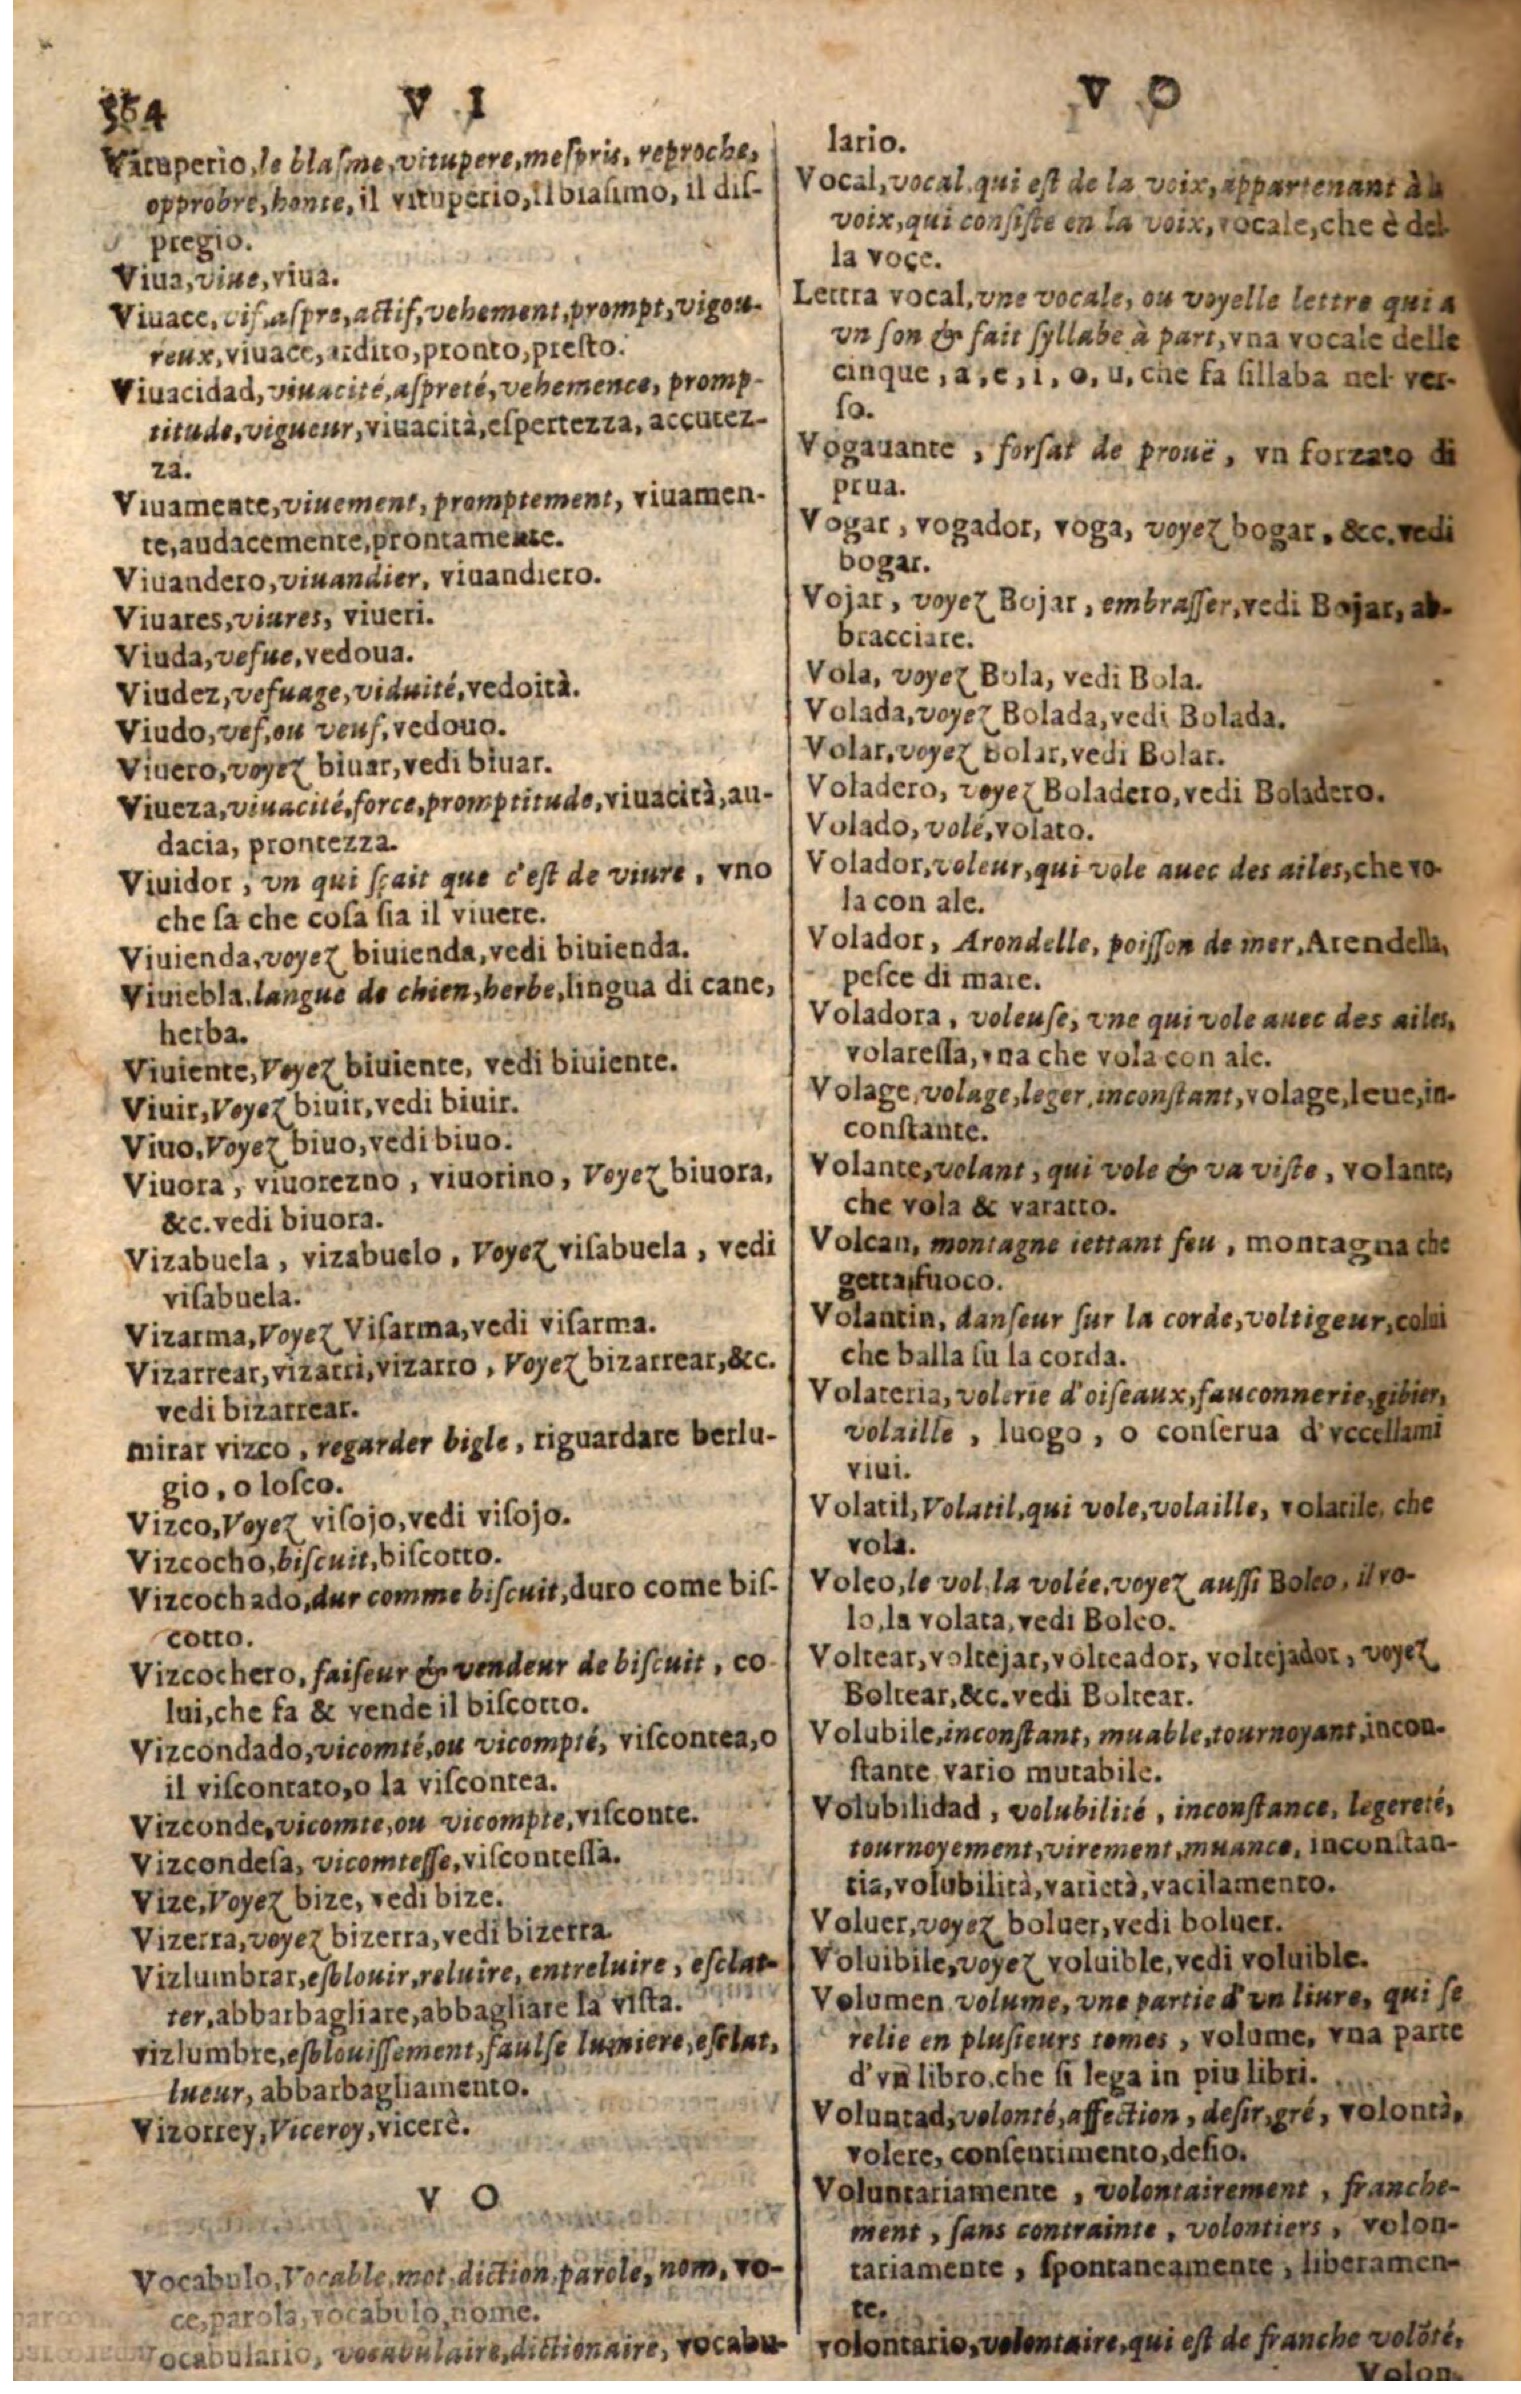 564
V I
Vituperio, le blaſme, vitupere, meſpris, reproche,
opprobre, honte, il vituperio, il biaſimo, il diſ-
pregio.
Viua, viue, viua.
Viuace, vif, aſpre, actif, vehement, prompt, vigou-
reux, viuace, ardito, pronto, preſto.
Viuacidad, viuacité, aſpreté, vehemence, promp-
titude, vigueur, viuacità, eſpertezza, accutez-
za.
Viuamente, viuement, promptement, viuamen-
te, audacemente, prontamente.
Viuandero, viuandier, viuandiero.
Viuares, viures, viueri.
Viuda, vefue, vedoua.
Viudez, vefuage, viduité, vedoità.
Viudo, vef, ou veuf, vedouo.
Viuero, voyez biuar, vedi biuar.
Viueza, viuacité, force, promptitude, viuacità, au-
dacia, prontezza.
Viuidor, vn qui ſçait que c'eſt de viure, vno
che ſa che coſa ſia il viuere.
Viuienda, voyez biuienda, vedi biuienda.
Viuiebla, langue de chien, herbe, lingua di cane,
herba.
Viuiente, Voyez biuiente, vedi biuiente.
Viuir, Voyez biuir, vedi biuir.
Viuo, Voyez biuo, vedi biuo.
Viuora, viuorezno, viuorino, Voyez biuora,
&c. vedi biuora.
Vizabuela, vizabuelo, Voyez viſabuela, vedi
viſabuela.
Vizarma, Voyez Viſarma, vedi viſarma.
Vizarrear, vizarri, vizarro, Voyez bizarrear, &c.
vedi bizarrear.
mirar vizco, regarder bigle, riguardare berlu-
gio, o loſco.
Vizco, Voyez viſojo, vedi viſojo.
Vizcocho, biſcuit, biſcotto.
Vizcochado, dur comme biſcuit, duro come biſ-
cotto.
Vizcochero, faiſeur & vendeur de biſcuit, co-
lui, che fa & vende il biſcotto.
Vizcondado, vicomté, ou vicompté, viſcontea, o
il viſcontato, o la viſcontea.
Vizconde, vicomte, ou vicompte, viſconte.
Vizcondeſa, vicomteſſe, viſconteſſa.
Vize, Voyez bize, vedi bize.
Vizerra, voyez bizerra, vedi bizerra.
Vizlumbrar, eſblouir, reluire, entreluire, eſclat-
ter, abbarbagliare, abbagliare la viſta.
vizlumbre, eſblouiſſement, faulſe lumiere, eſclat,
lueur, abbarbagliamento.
Vizorrey, Viceroy, vicerè.
V O
Vocabulo, Vocable, mot, diction, parole, nom, vo-
ce, parola, vocabulo, nome.
Vocabulario, vocabulaire, dictionaire, vocabu-
V O
lario.
Vocal, vocal, qui eſt de la voix, appartenant à la
voix, qui conſiſte en la voix, vocale, che è del-
la voce.
Lettra vocal, vne vocale, ou voyelle lettre qui a
vn ſon & fait ſyllabe à part, vna vocale delle
cinque, a, e, i, o, u, che fa ſillaba nel ver-
ſo.
Vogauante, forſat de prouë, vn forzato di
prua.
Vogar, vogador, voga, voyez bogar, &c. vedi
bogar.
Vojar, voyez Bojar, embraſſer, vedi Bojar, ab-
bracciare.
Vola, voyez Bola, vedi Bola.
Volada, voyez Bolada, vedi Bolada.
Volar, voyez Bolar, vedi Bolar.
Voladero, voyez Boladero, vedi Boladero.
Volado, volé, volato.
Volador, voleur, qui vole auec des ailes, che vo-
la con ale.
Volador, Arondelle, poiſſon de mer, Arendella,
peſce di mare.
Voladora, voleuſe, vne qui vole auec des ailes,
volareſſa, vna che vola con ale.
Volage, volage, leger, inconſtant, volage, leue, in-
conſtante.
Volante, volant, qui vole & va viſte, volante,
che vola & varatto.
Volcan, montagne iettant feu, montagna che
getta fuoco.
Volantin, danſeur ſur la corde, voltigeur, colui
che balla ſu la corda.
Volateria, volerie d'oiſeaux, fauconnerie, gibier,
volaille, luogo, o conſerua d'vccellami
viui.
Volatil, Volatil, qui vole, volaille, volatile, che
vola.
Voleo, le vol, la volée, voyez auſſi Boleo, il vo-
lo, la volata, vedi Boleo.
Voltear, voltejar, volteador, voltejador, voyez
Boltear, &c. vedi Boltear.
Volubile, inconſtant, muable, tournoyant, incon-
ſtante, vario mutabile.
Volubilidad, volubilité, inconſtance, legereté,
tournoyement, virement, muance, inconſtan-
tia, volubilità, varietà, vacilamento.
Voluer, voyez boluer, vedi boluer.
Voluibile, voyez voluible, vedi voluible.
Volumen, volume, vne partie d'vn liure, qui ſe
relie en pluſieurs tomes, volume, vna parte
d'vn libro, che ſi lega in piu libri.
Voluntad, volonté, affection, deſir, gré, volontà,
volere, conſentimento, deſio.
Voluntariamente, volontairement, franche-
ment, ſans contrainte, volontiers, volon-
tariamente, ſpontaneamente, liberamen-
te.
volontario, volontaire, qui eſt de franche volõté,
Volon-